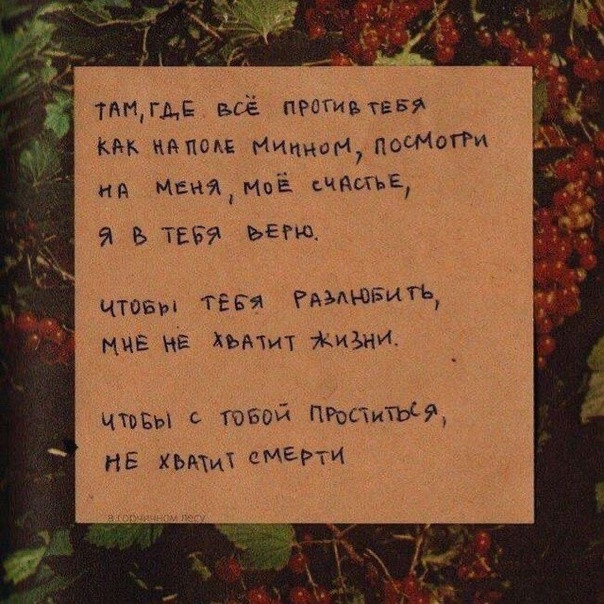 ТАМ, ГДЕ ВСЁ ПРОТИВ ТЕБЯ
КАК НА ПОЛЕ МИННОМ, ПОСМОТРИ
НА МЕНЯ, МОЁ СЧАСТЬЕ,
Я В ТЕБЯ ВЕРЮ.
ЧТОБЫ ТЕБЯ РАЗЛЮБИТЬ,
МНЕ НЕ ХВАТИТ ЖИЗНИ.
ЧТОБЫ С ТОБОЙ ПРОСТИТЬСЯ,
НЕ ХВАТИТ СМЕРТИ
в горчичном лесу